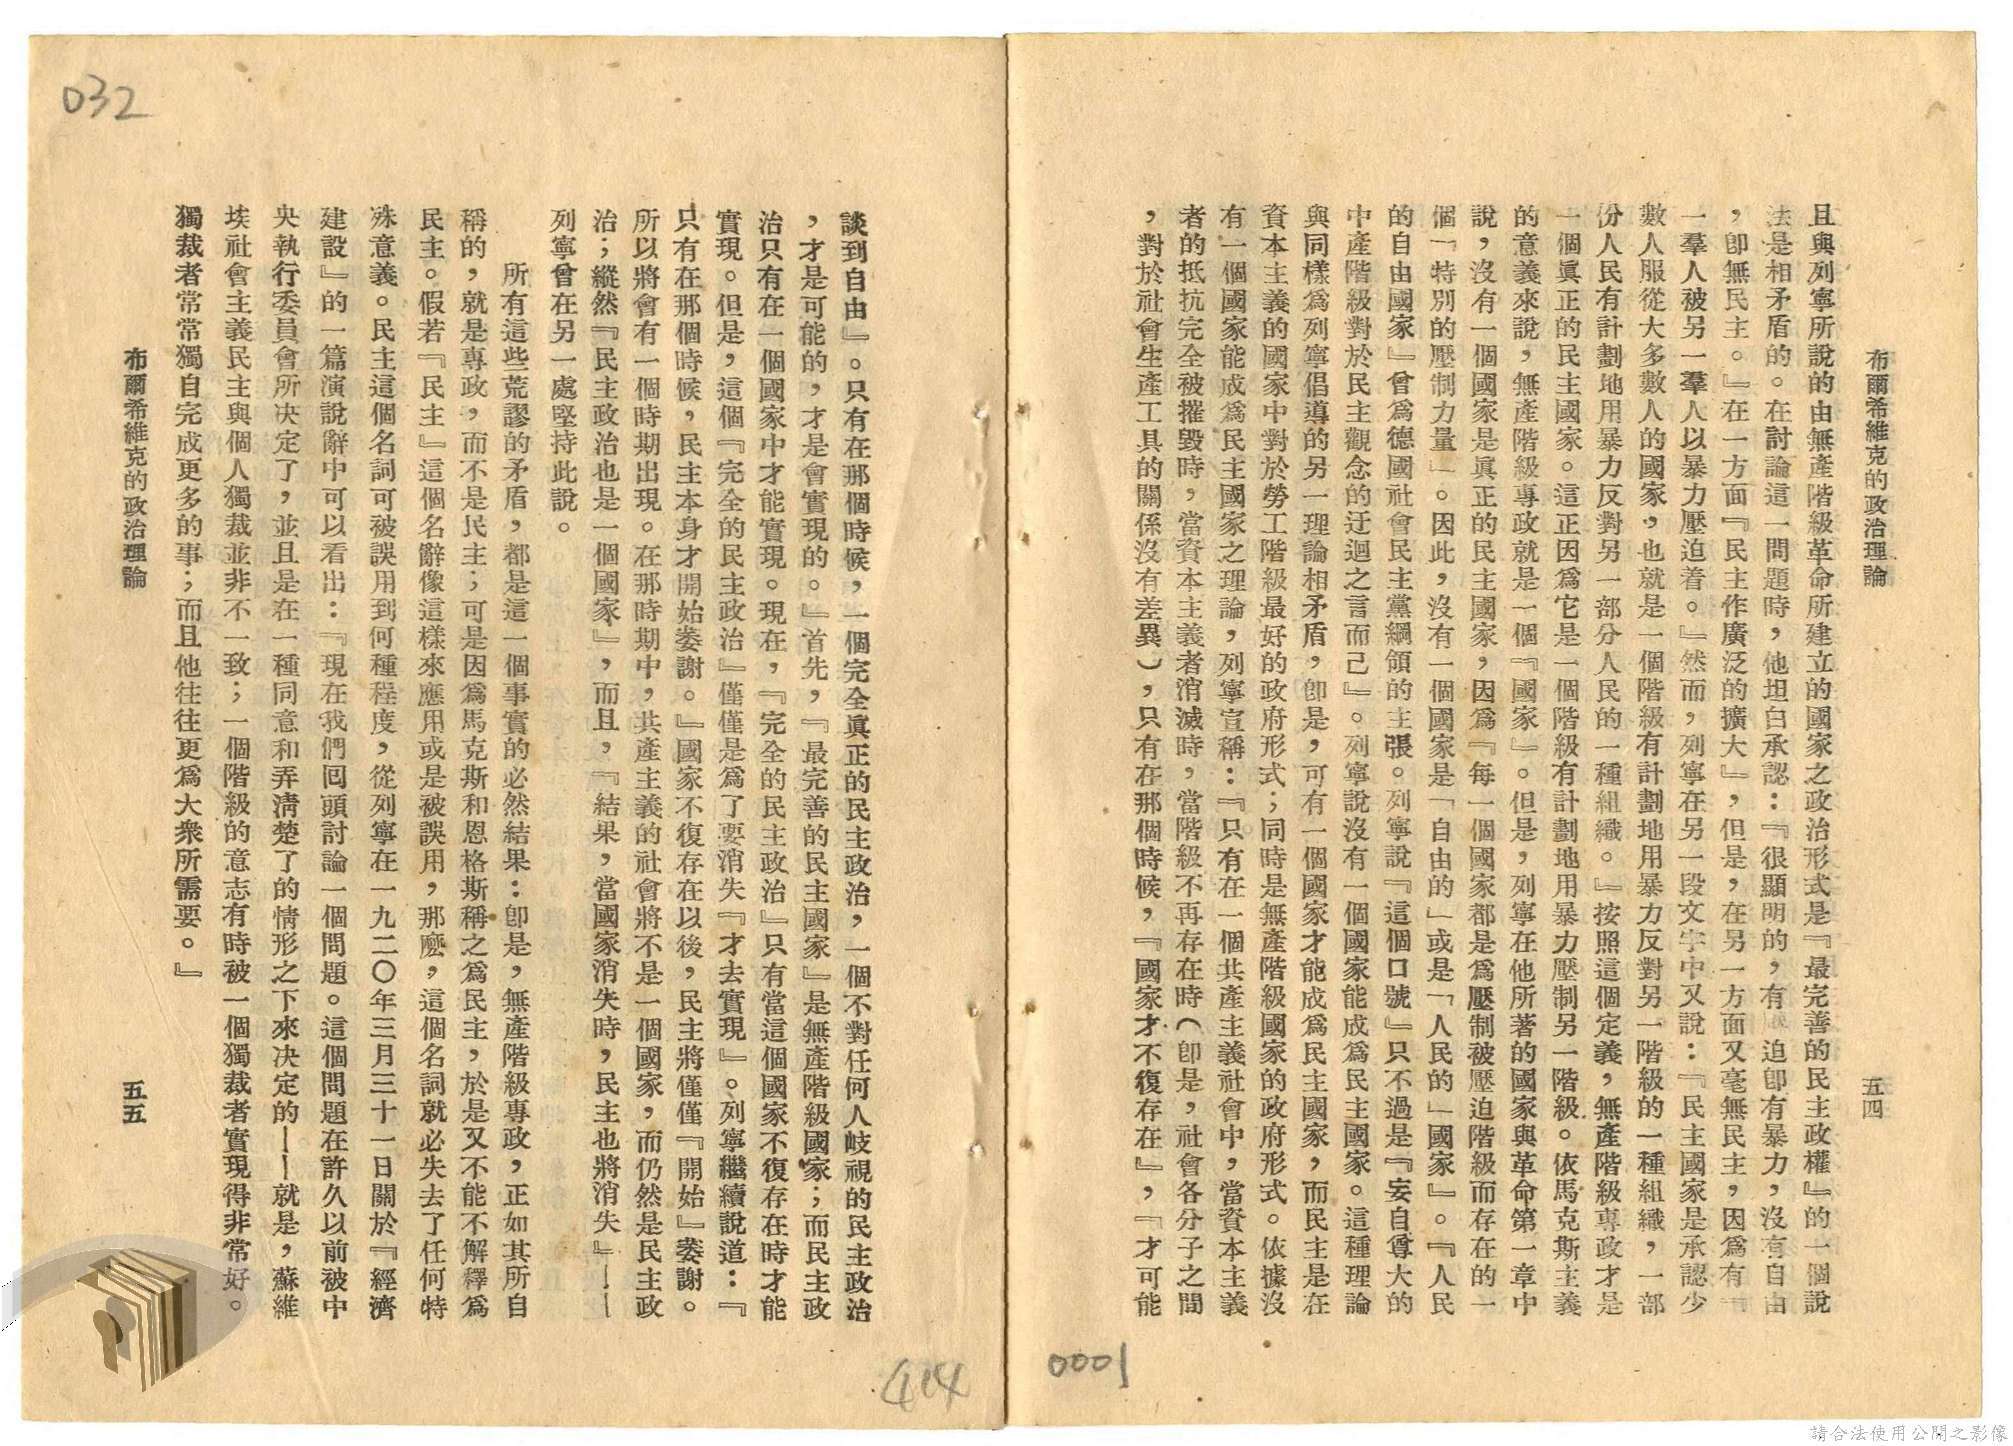 布爾希維克的政治理論
五四
且與列寧所說的由無產階級革命所建立的國家之政治形式是『最完善的民主政權』的一個說
法是相矛盾的。在討論這一問題時，他坦白承認：『很顯明的，有 迫卽有暴力，沒有自由
，卽無民主。』在一方面『民主作廣泛的擴大』，但是，在另一方面又毫無民主，因爲有『
一羣人被另一羣人以暴力壓迫着。』然而，列寧在另一段文字中又說：『民主國家是承認少
數人服從大多數人的國家，也就是一個階級有計劃地用暴力反對另一階級的一種組織，一部
份人民有計劃地用暴力反對另一部分人民的一種組織。』按照這個定義，無產階級專政才是
一個眞正的民主國家。這正因爲它是一個階級有計劃地用暴力壓制另一階級。依馬克斯主義
的意義來說，無產階級專政就是一個『國家』。但是，列寧在他所著的國家與革命第一章中
說，沒有一個國家是眞正的民主國家，因爲『每一個國家都是爲壓制被壓迫階級而存在的一
個「特別的壓制力量」。因此，沒有一個國家是「自由的」或是「人民的」國家』。『人民
的自由國家』曾爲德國社會民主黨綱領的主張。列寧說『這個口號』只不過是『妄自尊大的
中產階級對於民主觀念的迂迴之言而已』。列寧說沒有一個國家能成爲民主國家。這種理論
與同樣爲列寧倡導的另一理論相矛盾，卽是，可有一個國家才能成爲民主國家，而民主是在
資本主義的國家中對於勞工階級最好的政府形式；同時是無產階級國家的政府形式。依據沒
有一個國家能成爲民主國家之理論，列寧宣稱：『只有在一個共產主義社會中，當資本主義
者的抵抗完全被摧毀時，當資本主義者消滅時，當階級不再存在時（卽是，社會各分子之間
，對於社會生產工具的關係沒有差異），只有在那個時候，『國家才不復存在』，『才可能
0001
032
談到自由』。只有在那個時候，一個完全眞正的民主政治，一個不對任何人岐視的民主政治
，才是可能的，才是會實現的。』首先，『最完善的民主國家』是無產階級國家；而民主政
治只有在一個國家中才能實現。現在，『完全的民主政治』只有當這個國家不復存在時才能
實現。但是，這個『完全的民主政治』僅僅是爲了要消失『才去實現』。列寧繼續說道：『
只有在那個時候，民主本身才開始萎謝。』國家不復存在以後，民主將僅僅『開始』萎謝。
所以將會有一個時期出現。在那時期中，共產主義的社會將不是一個國家，而仍然是民主政
治；縱然『民主政治也是一個國家』，而且，『結果，當國家消失時，民主也將消失』——
列寧曾在另一處堅持此說。
所有這些荒謬的矛盾，都是這一個事實的必然結果：卽是，無產階級專政，正如其所自
稱的，就是專政，而不是民主；可是因爲馬克斯和恩格斯稱之爲民主，於是又不能不解釋爲
民主。假若『民主』這個名辭像這樣來應用或是被誤用，那麽，這個名詞就必失去了任何特
殊意義。民主這個名詞可被誤用到何種程度，從列寧在一九二〇年三月三十一日關於『經濟
建設』的一篇演說辭中可以看出：『現在我們回頭討論一個問題。這個問題在許久以前被中
央執行委員會所決定了，並且是在一種同意和弄清楚了的情形之下來決定的——就是，蘇維
埃社會主義民主與個人獨裁並非不一致；一個階級的意志有時被一個獨裁者實現得非常好。
獨裁者常常獨自完成更多的事；而且他往往更爲大衆所需要。』
布爾希維克的政治理論
五五
請合法使用公開之影像